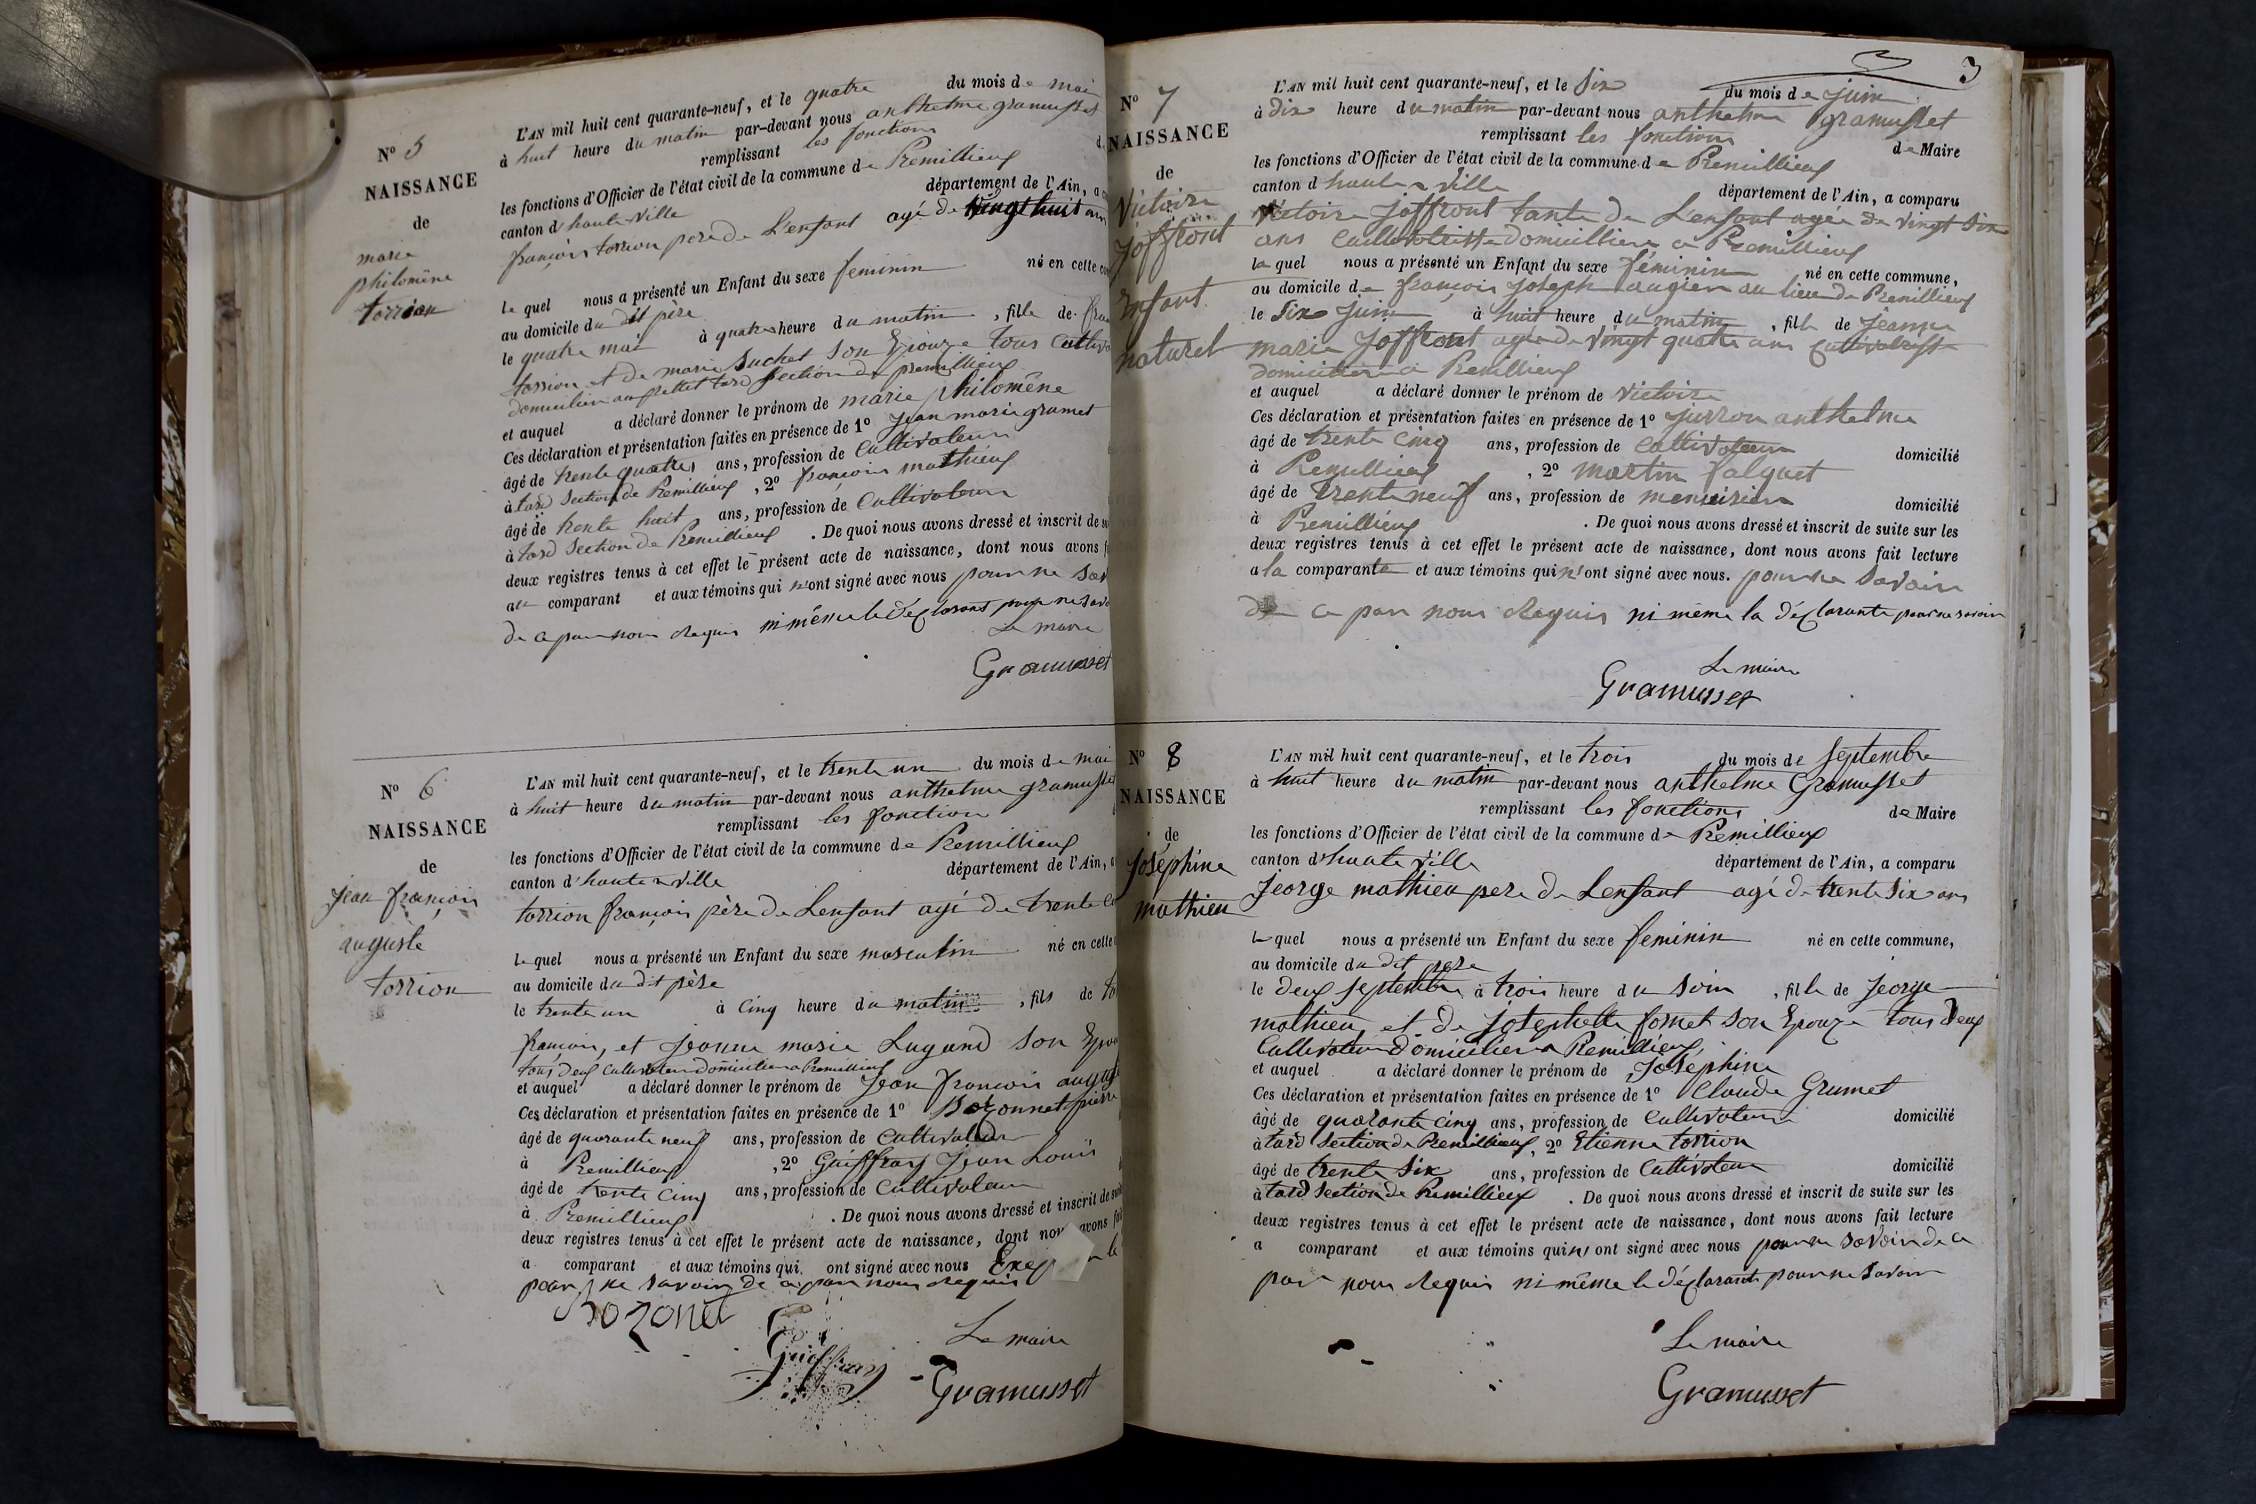 N° 5
NAISSANCE
de
marie
philomène
torrion
L'AN mil huit cent quarante-neuf, et le quatre du mois de mai
à huit heure du matin par-devant nous anthelme gramusset
remplissant les fonction d
les fonctions d'Officier de l'état civil de la commune de Premillieux
canton d'haute ville département de l'Ain, a
françois torrion pere de L'enfant agé de vingt huit ans
le quel nous a présenté un Enfant du sexe feminin né en cette
au domicile du dit père
le quatre mai à quatre heure du matin, fille de
torrion et de marie Suchet son Epouze tous
domicilien au petit tard Section de premillieux
et auquel a déclaré donner le prénom de marie philomène
Ces déclaration et présentation faites en présence de 1° Jean marie grumet
âgé de trente quatre ans, profession de Cultivateur
à tard Section de Premillieux, 2° françois mathieux
âgé de trente huit ans, profession de Cultivateur
à tard Section de Premillieux. De quoi nous avons dressé et inscrit de
deux registres tenus à cet effet le présent acte de naissance, dont nous avons
au comparant et aux témoins qui n'ont signé avec nous pour ne
de ce par nous requis ni même le déclarant pour ne
Le maire
Gramusset
N° 6
NAISSANCE
de
jean françois
auguste
torrion
L'AN mil huit cent quarante-neuf, et le trente un du mois de mai
à huit heure du matin par-devant nous anthelme gramusset
remplissant les fonction
les fonctions d'Officier de l'état civil de la commune de Premillieux
canton d'haute ville département de l'Ain,
torrion françois père de Lenfant agé de trente
le quel nous a présenté un Enfant du sexe masculin né en cette
au domicile du dit père
le trente un à cinq heure du matin, fils de
françois, et Jeanne marie Lugand son
tous deux Cultivateur domicilien a Premillieux
et auquel a déclaré donner le prénom de Jean françois
Ces déclaration et présentation faites en présence de 1° Bozonnet pierre
âgé de quarante neuf ans, profession de Cultivateur
à Premillieux, 2° Guiffray Jean Louis
âgé de trente cinq ans, profession de Cultivateur
à Premillieux. De quoi nous avons dressé et inscrit de
deux registres tenus à cet effet le présent acte de naissance, dont nous avons
a comparant et aux témoins qui ont signé avec nous
pour ne savoir de ce par nous requis
Bozonet
Guiffray
Le maire
Gramusset
3
N° 7
NAISSANCE
de
Victoire
joffront
Enfant
naturel
L'AN mil huit cent quarante-neuf, et le Six du mois de juin
à dix heure du matin par-devant nous anthelme gramusset
remplissant les fonction de Maire
les fonctions d'Officier de l'état civil de la commune de Premillieux
canton d haute ville département de l'Ain, a comparu
victoire joffront tante de L'enfant agée de vingt Six
ans Cultivatrisse domicilliere a Premillieux
la quel nous a présenté un Enfant du sexe féminin né en cette commune,
au domicile de françois joseph augier au lieu de Premillieux
le Six juin à huit heure du matin, fille de jeanne
marie joffront agée de vingt quatre ans Cultivatrisse
domiciliere a Premillieux
et auquel a déclaré donner le prénom de victoire
Ces déclaration et présentation faites en présence de 1° jurron anthelme
âgé de trente cinq ans, profession de Cultivateur domicilié
à Premillieux, 2° martin falquet
âgé de trente neuf ans, profession de menuisier domicilié
à Premillieux. De quoi nous avons dressé et inscrit de suite sur les
deux registres tenus à cet effet le présent acte de naissance, dont nous avons fait lecture
a la comparante et aux témoins qui n'ont signé avec nous. pour ne savoir
de ce par nous requis ni même la déclarante pour ne savoir
Le maire
Gramusset
N° 8
NAISSANCE
de
Joséphine
mathieu
L'AN mil huit cent quarante-neuf, et le trois du mois de Septembre
à huit heure du matin par-devant nous anthelme Gramusset
remplissant les fonctions de Maire
les fonctions d'Officier de l'état civil de la commune de Premillieux
canton d'haute ville département de l'Ain, a comparu
jeorge mathieu pere de Lenfant agé de trente Six ans
le quel nous a présenté un Enfant du sexe feminin né en cette commune,
au domicile du dit pere
le deux Septembre à trois heure du Soir, fille de jeorge
mathieu, et de josephette fornet son Epouze tous deux
Cultivateur domicilier a Premillieux
et auquel a déclaré donner le prénom de Joséphine
Ces déclaration et présentation faites en présence de 1° Claude Grumet
âgé de quarante cinq ans, profession de Cultivateur domicilié
à tard Section de Premillieux, 2° Etienne torrion
âgé de trente Six ans, profession de Cultivateur domicilié
à tard Section de Premillieux. De quoi nous avons dressé et inscrit de suite sur les
deux registres tenus à cet effet le présent acte de naissance, dont nous avons fait lecture
a comparant et aux témoins qui n'ont signé avec nous pour ne savoir de ce
par nous requis ni même le déclarant pour ne Savoir
Le maire
Gramusset